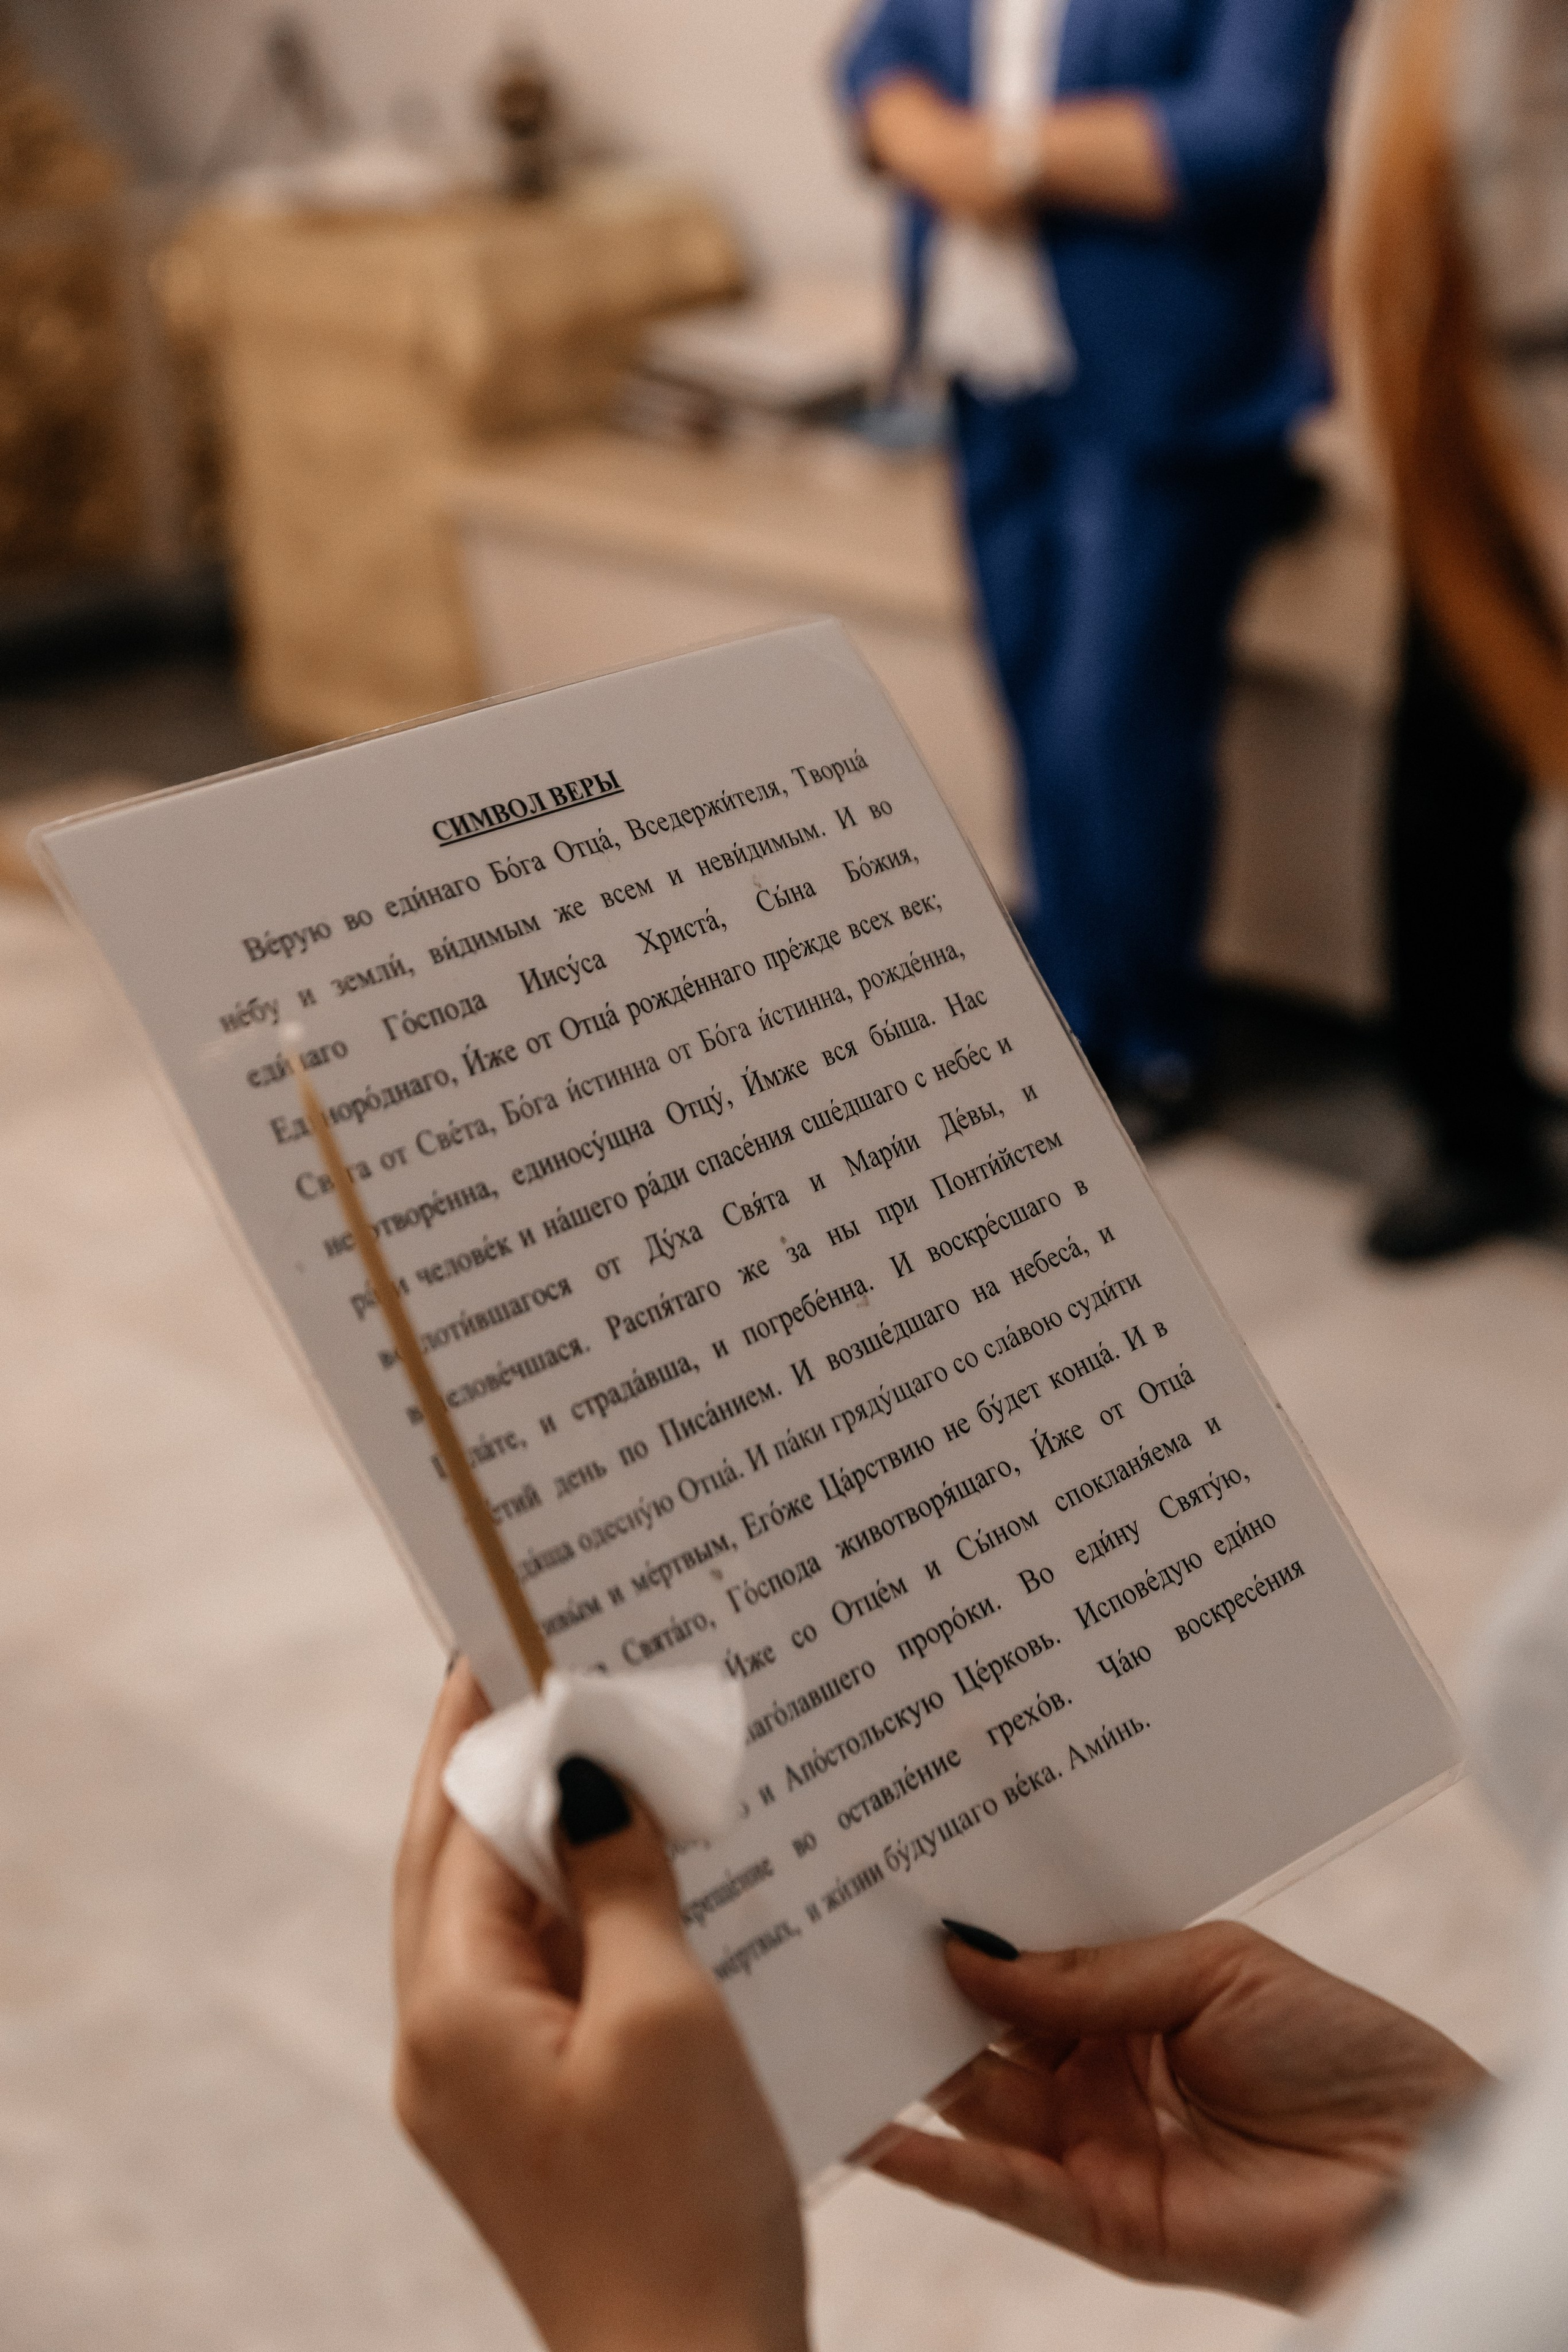 СИМВОЛ ВЕРЫ
Ве́рую во еди́наго Бо́га Отца́, Вседержи́теля, Творца́
не́бу и земли́, ви́димым же всем и неви́димым. И во
еди́наго Го́спода Иису́са Христа́, Сы́на Бо́жия,
Единоро́днаго, И́же от Отца́ рожде́ннаго пре́жде всех век;
Све́та от Све́та, Бо́га и́стинна от Бо́га и́стинна, рожде́нна,
несотворе́нна, единосу́щна Отцу́, И́мже вся бы́ша. Нас
ра́ди челове́к и на́шего ра́ди спасе́ния сше́дшаго с небе́с и
воплоти́вшагося от Ду́ха Свя́та и Мари́и Де́вы, и
вочелове́чшася. Распя́таго же за ны при Понти́йстем
Пила́те, и страда́вша, и погребе́нна. И воскре́сшаго в
тре́тий день по Писа́нием. И возше́дшаго на небеса́, и
седя́ща одесну́ю Отца́. И па́ки гряду́щаго со сла́вою суди́ти
живы́м и ме́ртвым, Его́же Ца́рствию не бу́дет конца́. И в
Свята́го, Го́спода животворя́щаго, И́же от Отца́
И́же со Отце́м и Сы́ном спокланя́ема и
глаго́лавшего проро́ки. Во еди́ну Святу́ю,
и Апо́стольскую Це́рковь. Испове́дую еди́но
креще́ние во оставле́ние грехо́в. Ча́ю воскресе́ния
ме́ртвых, и жи́зни бу́дущаго ве́ка. Ами́нь.